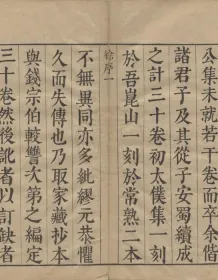 公集未就若干卷而卒余偕
諸君子及其從子安蜀續成
之計三十卷初太僕集一刻
於吾崑山一刻於常熟二本
徐序一
不無異同亦多紕繆元恭懼
久而失傳也乃取家藏抄本
與錢宗伯較讐次第之編定
三十卷然後訛者以訂缺者